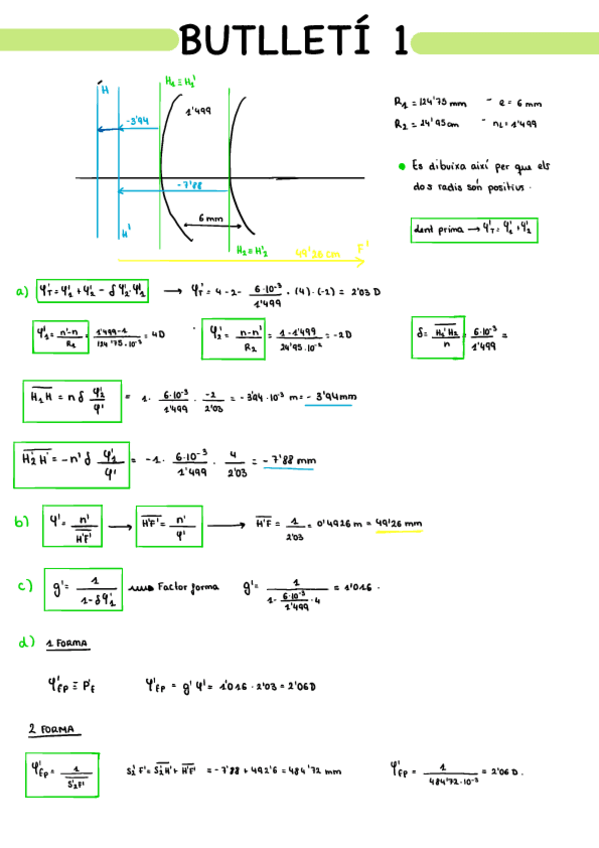 BUTLLETÍ 1
H
H₁ ≡ H₁'
1'499
-3'94
-7'88
6 mm
H'
H₂ ≡ H₂'
49'26 cm F'
R₁ = 124'75 mm - e = 6 mm
R₂ = 24'95 cm - nL = 1'499
• Es dibuixa així per que els
dos radis són positius.
lent prima → φ'T = φ'1 + φ'2
a) φ'T = φ'1 + φ'2 - δ φ'2 φ'1 → φ'T = 4 - 2 - 6·10⁻³/1'499 · (4)·(-2) = 2'03 D
φ'1 = n'-n/R₁ = 1'499-1/124'75·10⁻³ = 4D
φ'2 = n-n'/R₂ = 1-1'499/24'95·10⁻² = -2D
δ = H₁'H₂/n = 6·10⁻³/1'499 =
H₁H = n δ φ'2/φ' = 1 · 6·10⁻³/1'499 · -2/2'03 = -3'94·10⁻³ m = -3'94mm
H₂'H' = -n' δ φ'1/φ' = -1 · 6·10⁻³/1'499 · 4/2'03 = -7'88 mm
b) φ' = n'/H'F' → H'F' = n'/φ' → H'F = 1/2'03 = 0'4926 m = 49'26 mm
c) g' = 1/1-δφ'1 Factor forma g' = 1/1-6·10⁻³/1'499·4 = 1'016.
d) 1 FORMA
φ'FP ≡ P'F φ'FP = g' φ' = 1'016 · 2'03 = 2'06D
2 FORMA
φ'FP = 1/S₂'F' S₂'F' = S₂'H' + H'F' = -7'88 + 492'6 = 484'72 mm φ'FP = 1/484'72·10⁻³ = 2'06 D.